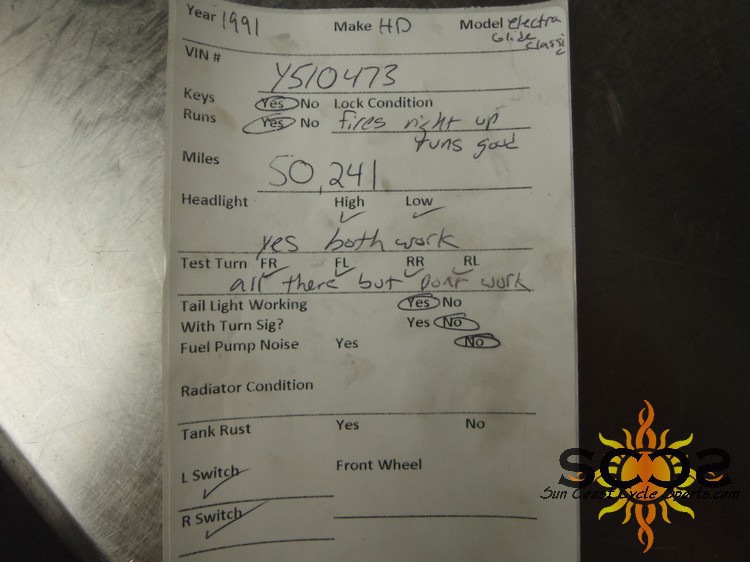 Year 1991 Make HD Model Electra
Glide
Classic
VIN #
Y510473
Keys Yes No Lock Condition
Runs Yes No fires right up
runs good
Miles
50,241
Headlight High Low
yes both work
Test Turn FR FL RR RL
all there but Dont work
Tail Light Working Yes No
With Turn Sig? Yes No
Fuel Pump Noise Yes No
Radiator Condition
Tank Rust Yes No
L Switch Front Wheel
R Switch
SCCS
Sun Coast Cycle Sports.com